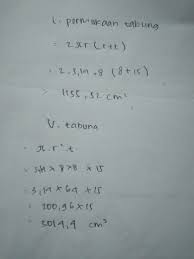 L. permukaan tabung
= 2πr (r+t)
= 2.3,14.8 (8+15)
= 1155,52 cm²
V. tabung
= π.r².t
= 3,14 × 8×8 × 15
= 3,14 × 64 × 15
= 200,96 × 15
= 3014,4 cm³